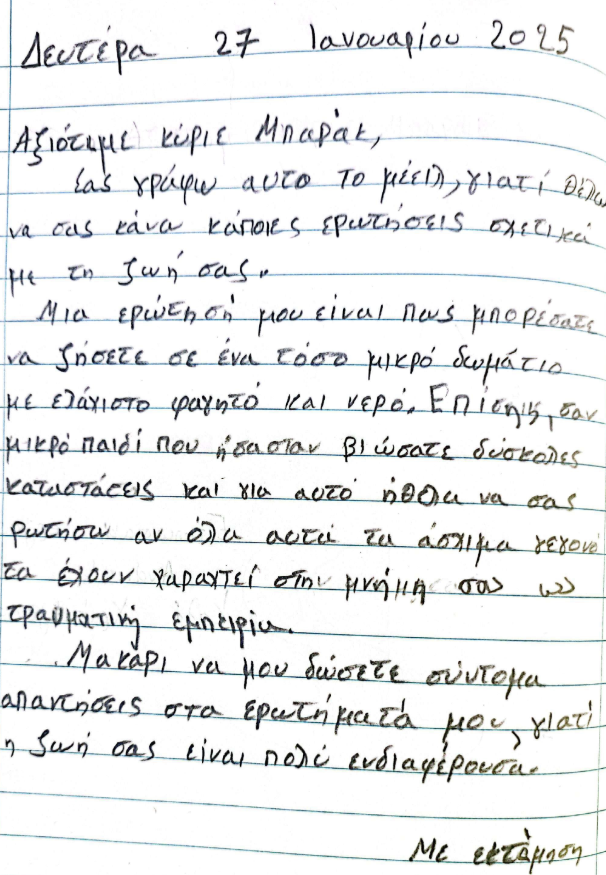 Δευτέρα 27 Ιανουαρίου 2025
Αξιότιμε κύριε Μπαράκ,
Σας γράφω αυτο το μέειλ, γιατί θέλω
να σας κάνα κάποιες ερωτήσεις σχετικά
με τη ζωή σας.
Μια ερώτησή μου είναι πως μπορέσατε
να ζήσετε σε ένα τόσο μικρό δωμάτιο
με ελάχιστο φαγητό και νερό. Επίσης, σαν
μικρό παιδί που ήσασταν βιώσατε δύσκολες
καταστάσεις και για αυτό ήθελα να σας
ρωτήσω αν όλα αυτά τα άσχιμα γεγονό
τα έχουν χαραχτεί στην μνήμη σας ως
τραυματική εμπειρία.
Μακάρι να μου δώσετε σύντομα
απαντήσεις στα ερωτήματά μου, γιατί
η ζωή σας είναι πολύ ενδιαφέρουσα.
Με εκτίμηση